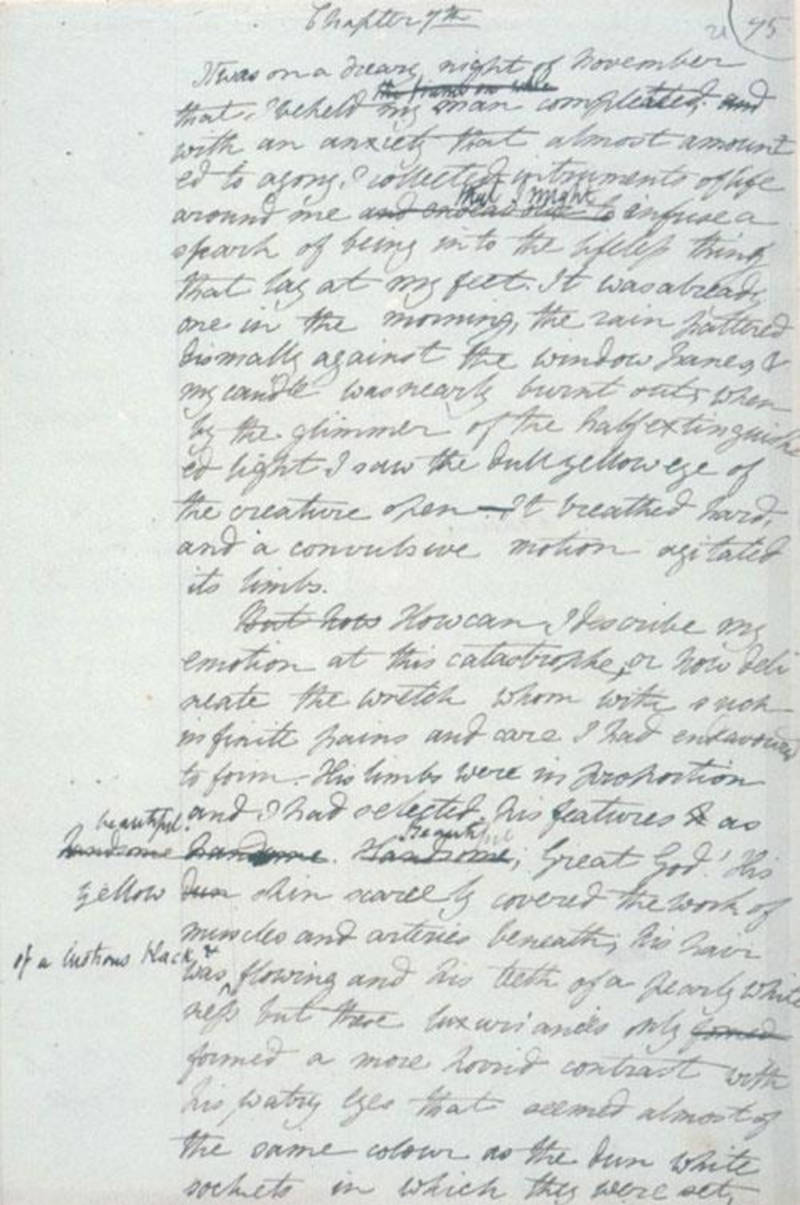 Chapter 7th
21 95
It was on a dreary night of November
the frame on whic
that I beheld my man compleated, and
with an anxiety that almost amount
ed to agony, I collected intruments of life
that I might
around me and endeavour to infuse a
spark of being into the lifeless thing
that lay at my feet. It was already
one in the morning, the rain pattered
dismally against the window panes, &
my candle was nearly burnt out, when
by the glimmer of the half extinguish
ed light I saw the dull yellow eye of
the creature open – It breathed hard,
and a convulsive motion agitated
its limbs.
But how How can I describe my
emotion at this catastrophe; or how deli
neate the wretch whom with such
infinite pains and care I had endeavoured
to form. His limbs were in proportion
and I had selected his features & as
beautiful. beautiful
handsome handsome. Handsome; Great God! His
yellow dun skin scarcely covered the work of
muscles and arteries beneath; his hair
of a lustrous black, &
was flowing and his teeth of a pearly white
ness but these luxuriancies only formed
formed a more horrid contrast with
his watry eyes that seemed almost of
the same colour as the dun white
sockets in which they were set,